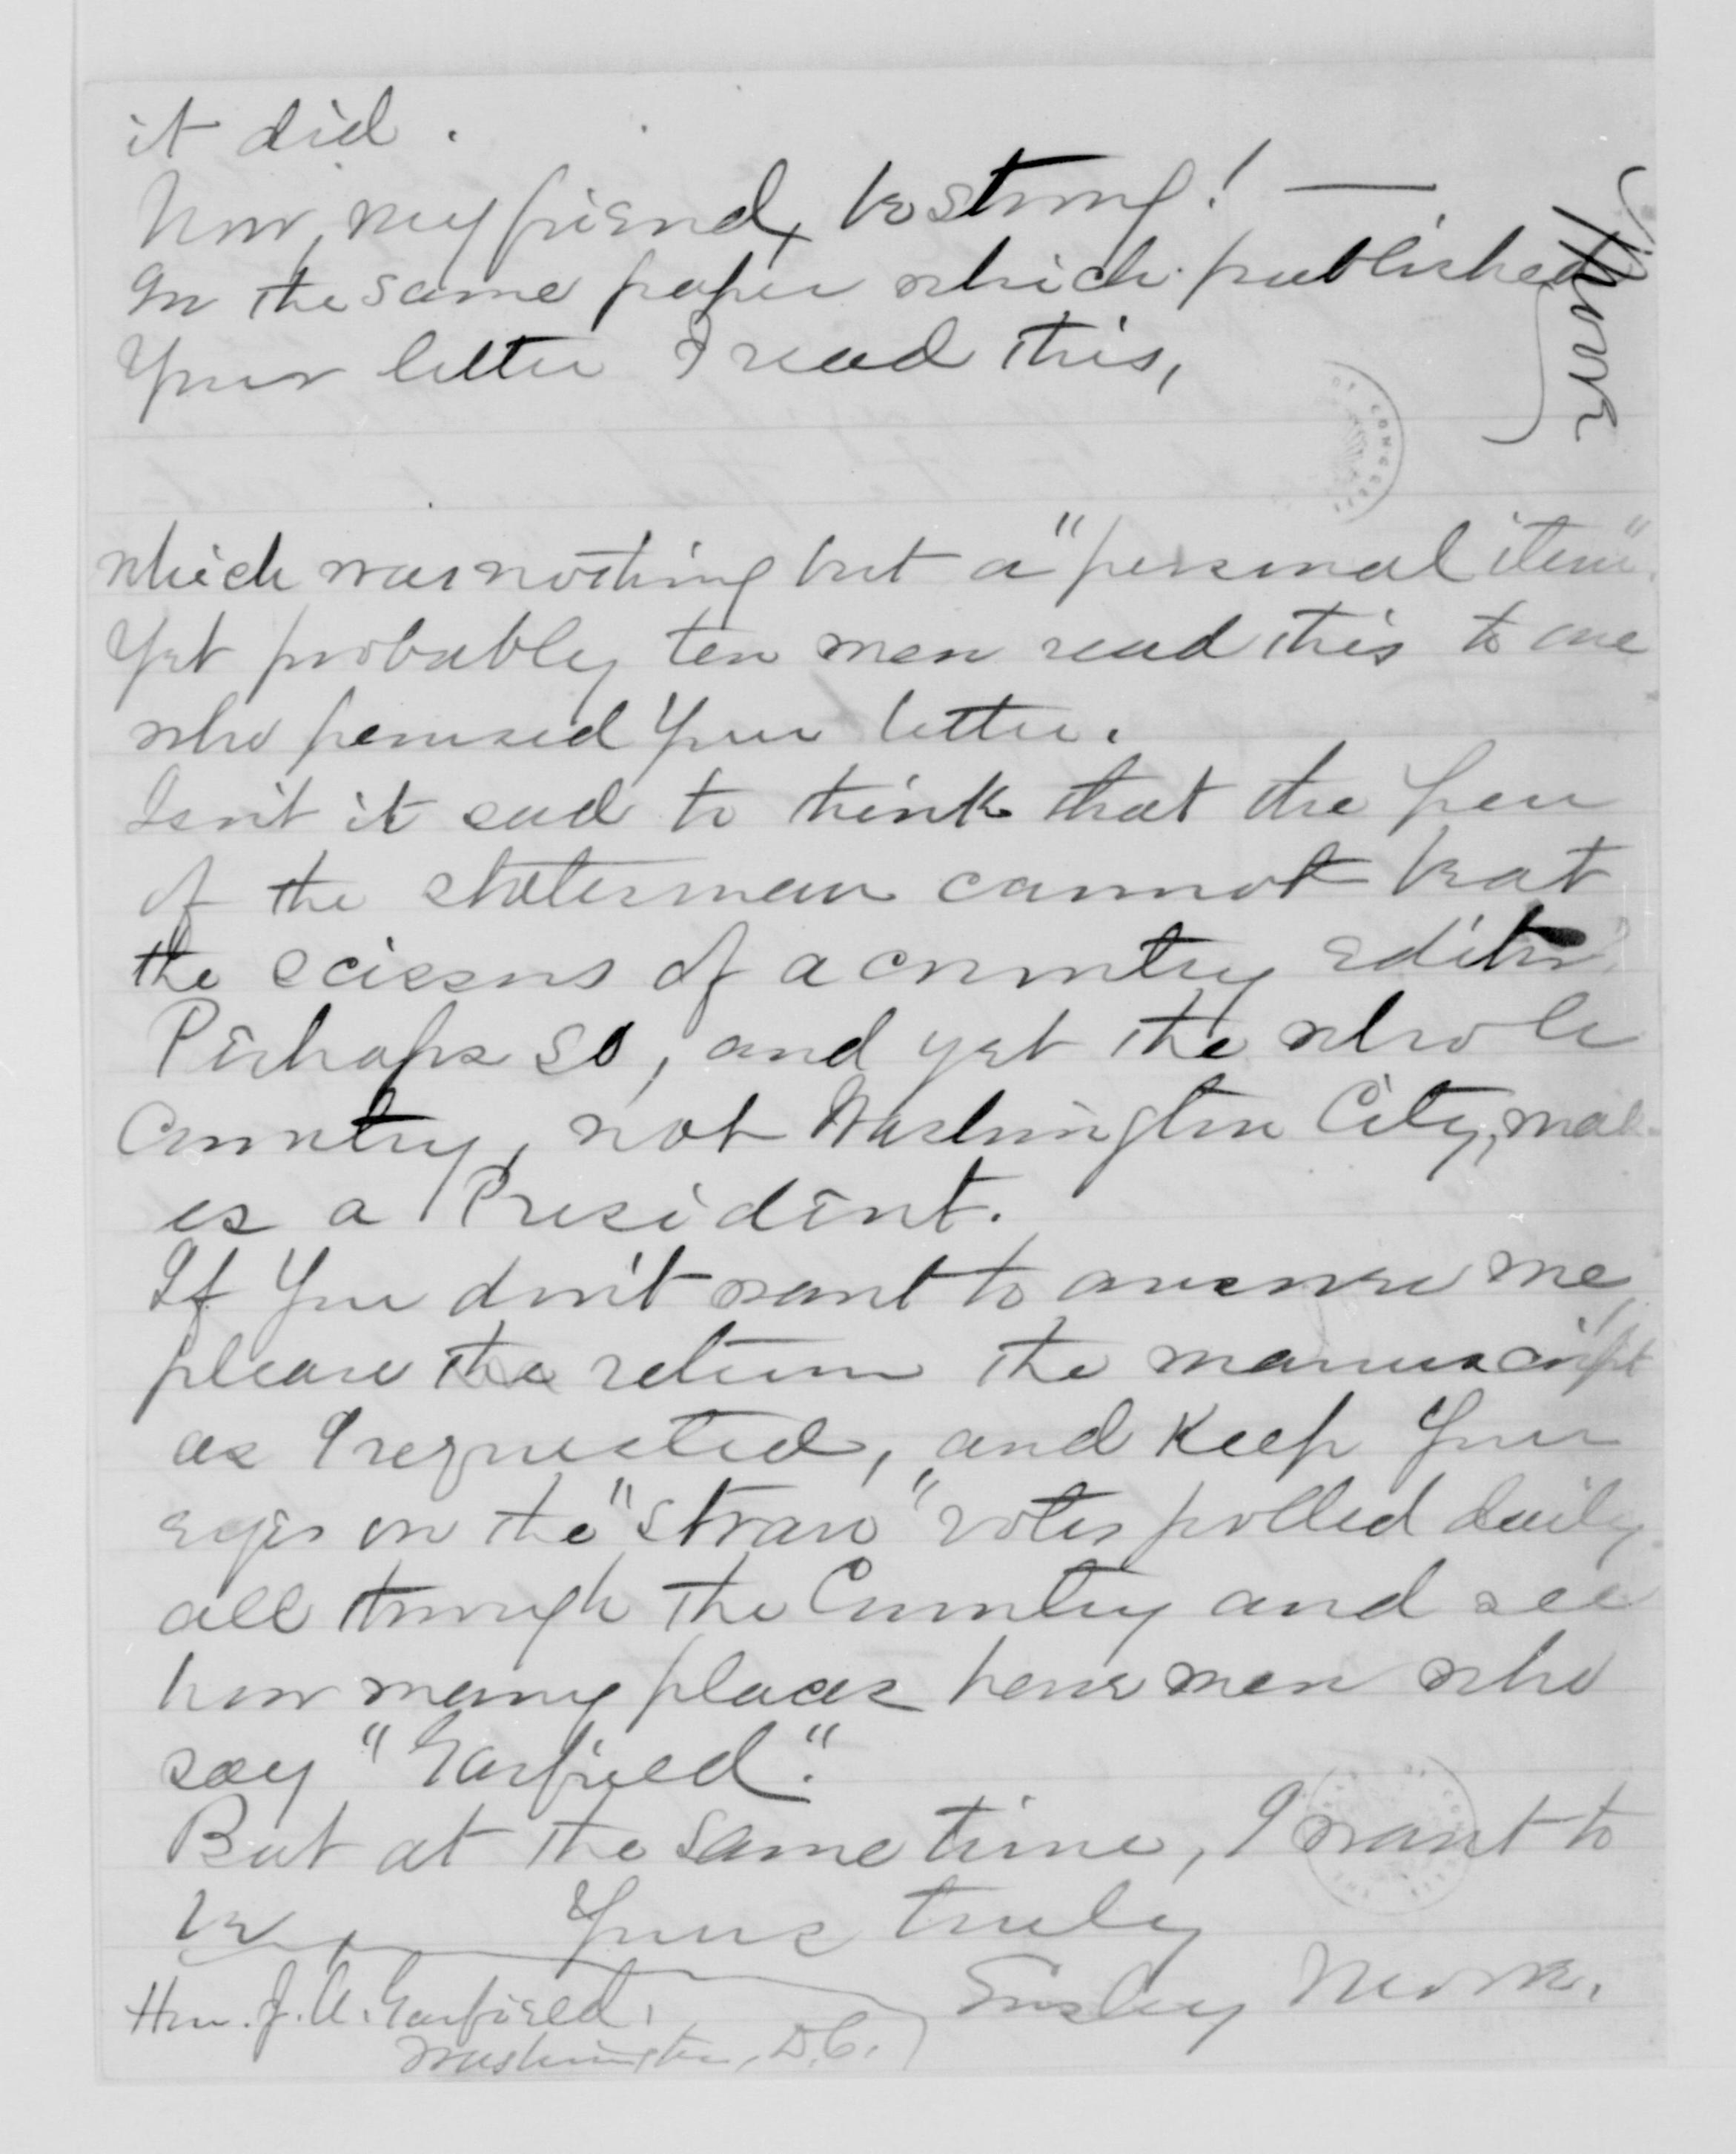 it did.
Now, my friend, be strong! —
In the same paper which published
Your letter I read this,
which was nothing but a "personal item".
Yet probably ten men read this to one
who perused Your letter.
Isn't it sad to think that the pen
of the statesman cannot beat
the scissors of a country editor?
Perhaps so, and yet the whole
Country, not Washington City, mak-
es a President.
If You don't want to answer me,
please the return the manuscript
as I requested, and keep Your
eyes on the "straw" votes polled daily
all through the Country and see
how many places have men who
say "Garfield".
But at the same time, I want to
be Yours truly
Ensley Moore.
Hon. J. A. Garfield,
Washington, D.C.
OF CONGRESS